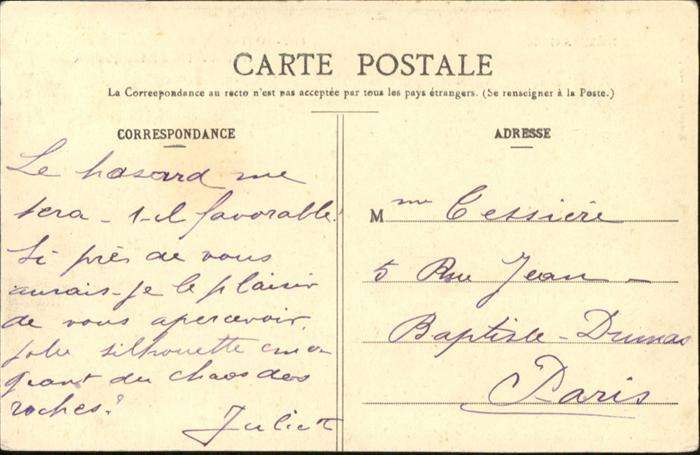 CARTE POSTALE
La Correspondance au recto n'est pas acceptée par tous les pays étrangers. (Se renseigner à la Poste.)
CORRESPONDANCE
Le hasard me
sera-t-il favorable!
Si près de vous
aurais-je le plaisir
de vous apercevoir,
jolie silhouette émer
geant du chaos des
roches?
ADRESSE
Mme Tessière
5 Rue Jean-
Baptiste-Dumas
Paris